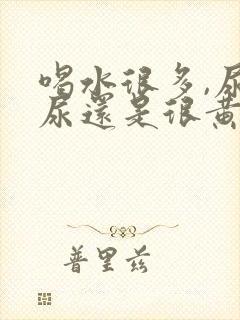 喝水很多,尿
尿還是很黃
普里兹